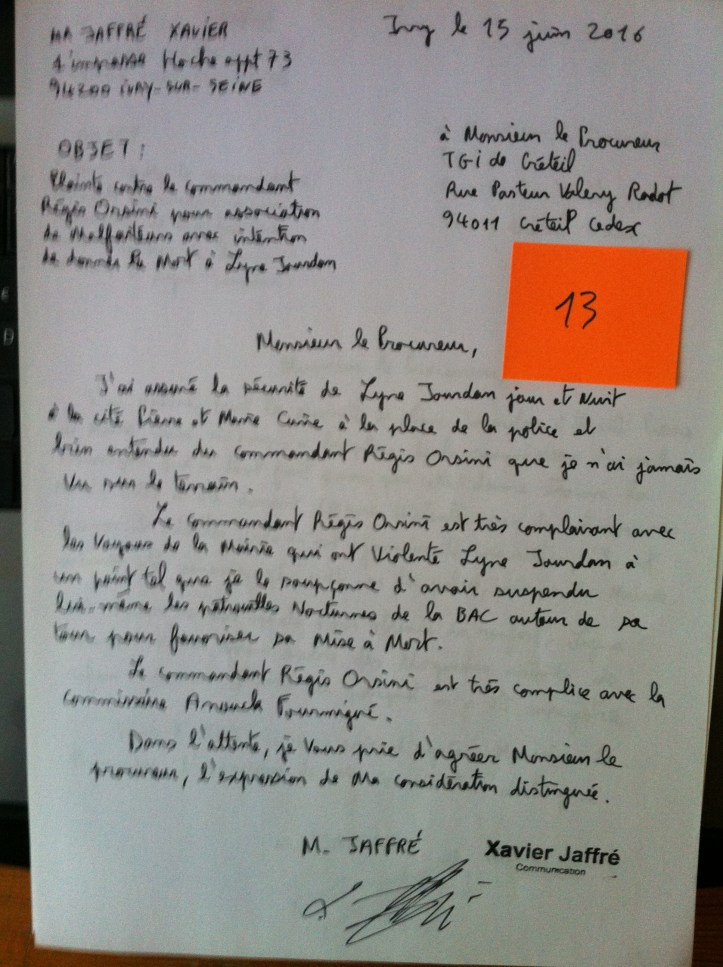 MR JAFFRÉ XAVIER
Ivry le 15 juin 2016
1 impasse Hoche appt 73
94200 IVRY-SUR-SEINE
à Monsieur le Procureur
TGI de Créteil
Rue Pasteur Valery Radot
94011 Créteil Cedex
OBJET :
Plainte contre le commandant
Régis Orsini pour association
de Malfaiteurs avec intention
de donner la Mort à Lyne Jourdan
13
Monsieur le Procureur,
J'ai assuré la sécurité de Lyne Jourdan jour et Nuit
à la cité Pierre et Marie Curie à la place de la police et
bien entendu du commandant Régis Orsini que je n'ai jamais
vu sur le terrain.
Le commandant Régis Orsini est très complaisant avec
les Voyous de la Mairie qui ont Violenté Lyne Jourdan à
un point tel que je le soupçonne d'avoir suspendu
lui-même les patrouilles Nocturnes de la BAC autour de sa
tour pour favoriser sa Mise à Mort.
Le commandant Régis Orsini est très complice avec la
commissaire Anouck Fourmigué.
Dans l'attente, je Vous prie d'agréer Monsieur le
procureur, l'expression de Ma considération distinguée.
M. JAFFRÉ
Xavier Jaffré
Communication